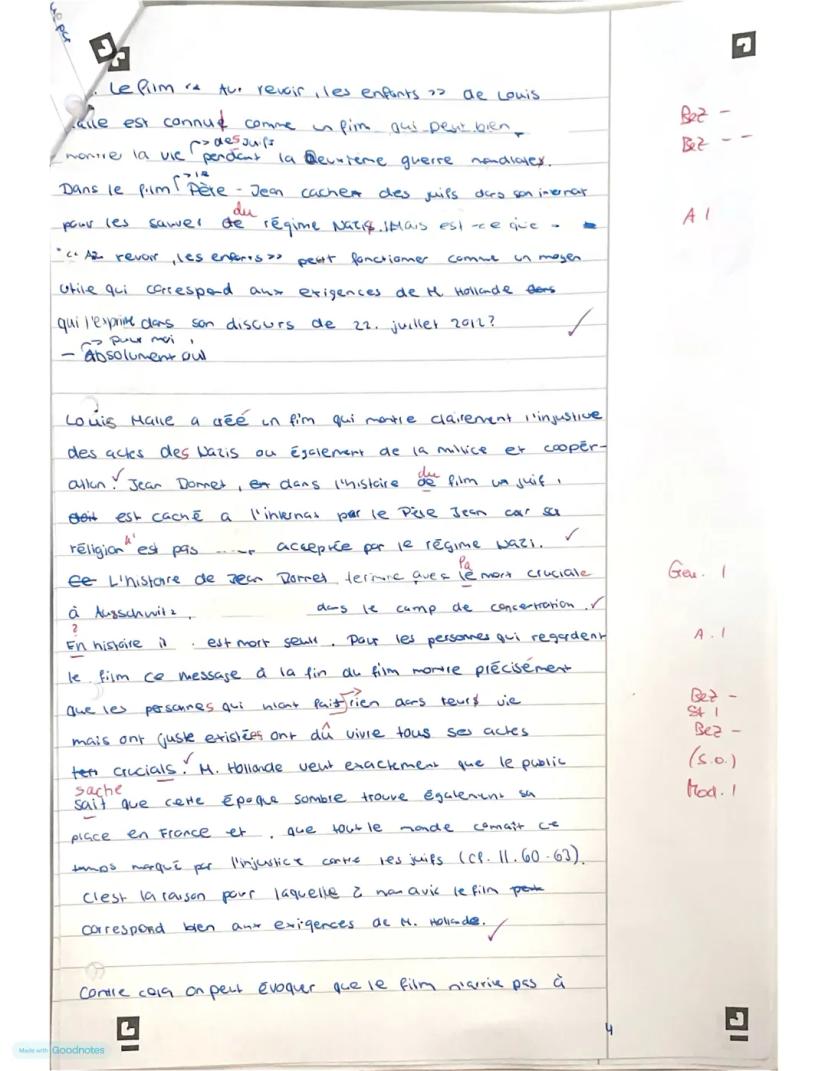 40 pkt
Le film << Au revoir, les enfants >> de Louis
Malle est connu comme un fim qui peut bien
des juifs
montre la vie pendant la Deuxième guerre mondiales.
le
Dans le film Père-Jean cacher des juifs dans son internat
pour les sauver de régime Nazis. Mais est-ce que
du
"<< Au revoir, les enfants >> peut fonctionner comme un moyen
utile qui correspond aux exigences de M. Hollande dans
qui l'exprime dans son discurs de 22. juillet 2012?
pour moi,
- Absolument oui
Louis Malle a créé un fim qui montre clairement l'injustice
des actes des Nazis ou également de la milice et coopér-
ation. Jean Bonnet, en dans l'histoire de film un juif,
du
était est caché a l'internat par le Père Jean car sa
réligion est pas acceptée par le régime Nazi.
n'
Ce L'histoire de Jean Bonnet termine avec le mort cruciale
la
à Ausschwitz, dans le camp de concentration.
?
En histoire il est mort seule. Pour les personnes qui regardent
le film ce message à la fin du film montre précisément
que les personnes qui n'ont fait rien dans leurs vie
mais ont juste existées ont dû vivre tous ses actes
crucials. M. Hollande veut exactement que le public
sache
sait que cette époque sombre trouve également sa
place en France et, que tout le monde connait ce
temps marqué par l'injustice contre les juifs (cf. ll. 60-63).
C'est la raison pour laquelle à mon avis le film peut
correspond bien aux exigences de M. Hollande.
Contre cela on peut évoquer que le film n'arrive pas à
Bez -
Bez - -
A 1
Gen. 1
A. 1
Bez -
St 1
Bez -
(s.o.)
Mod. 1
4
Made with Goodnotes